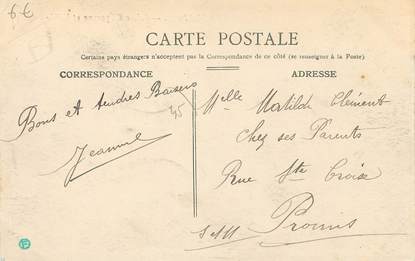 6€
CARTE POSTALE
Certains pays étrangers n'acceptent pas la Correspondance de ce côté (se renseigner à la Poste)
CORRESPONDANCE
ADRESSE
Bons et tendres Baisers
Jeanne
45
Melle Matilde Clément
Chez ses Parents
Rue Ste Croix
Provins
S et M